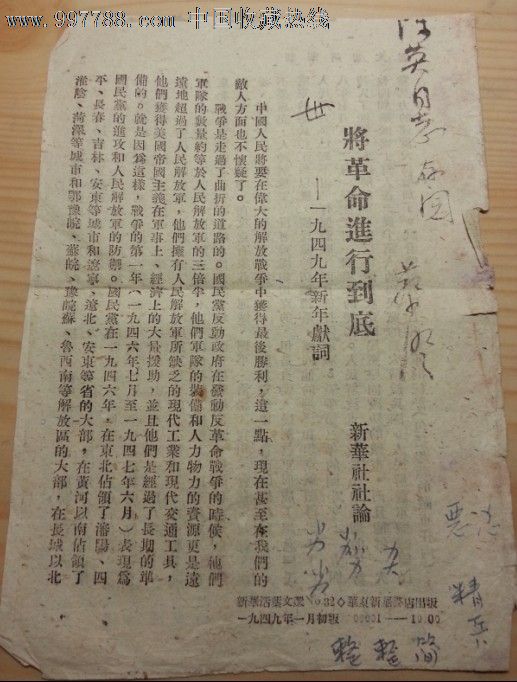 www.997788.com 中国收藏热线
同志
將革命進行到底
——一九四九年新年獻詞
新華社社論
中國人民將要在偉大的解放戰爭中獲得最後勝利，這一點，現在甚至在我們的
敵人方面也不懷疑了。
戰爭是走過了曲折的道路的。國民黨反動政府在發動反革命戰爭的時候，他們
軍隊的數量約等於人民解放軍的三倍半，他們軍隊的裝備和人力物力的資源更是遠
遠地超過了人民解放軍，他們擁有人民解放軍所缺乏的現代工業和現代交通工具，
他們獲得美國帝國主義在軍事上、經濟上的大量援助，並且他們是經過了長期的準
備的。就是因爲這樣，戰爭的第一年（一九四六年七月至一九四七年六月）表現爲
國民黨的進攻和人民解放軍的防禦。國民黨在一九四六年，在東北佔領了瀋陽、四
平、長春、吉林、安東等城市和遼寧、遼北、安東等省的大部，在黃河以南佔領了
淮陰、菏澤等城市和鄂豫皖、蘇皖、豫皖蘇、魯西南等解放區的大部，在長城以北
新華活葉文選 No 32◇華東新華書店出版
一九四九年一月初版 00001—10000
精兵
簡